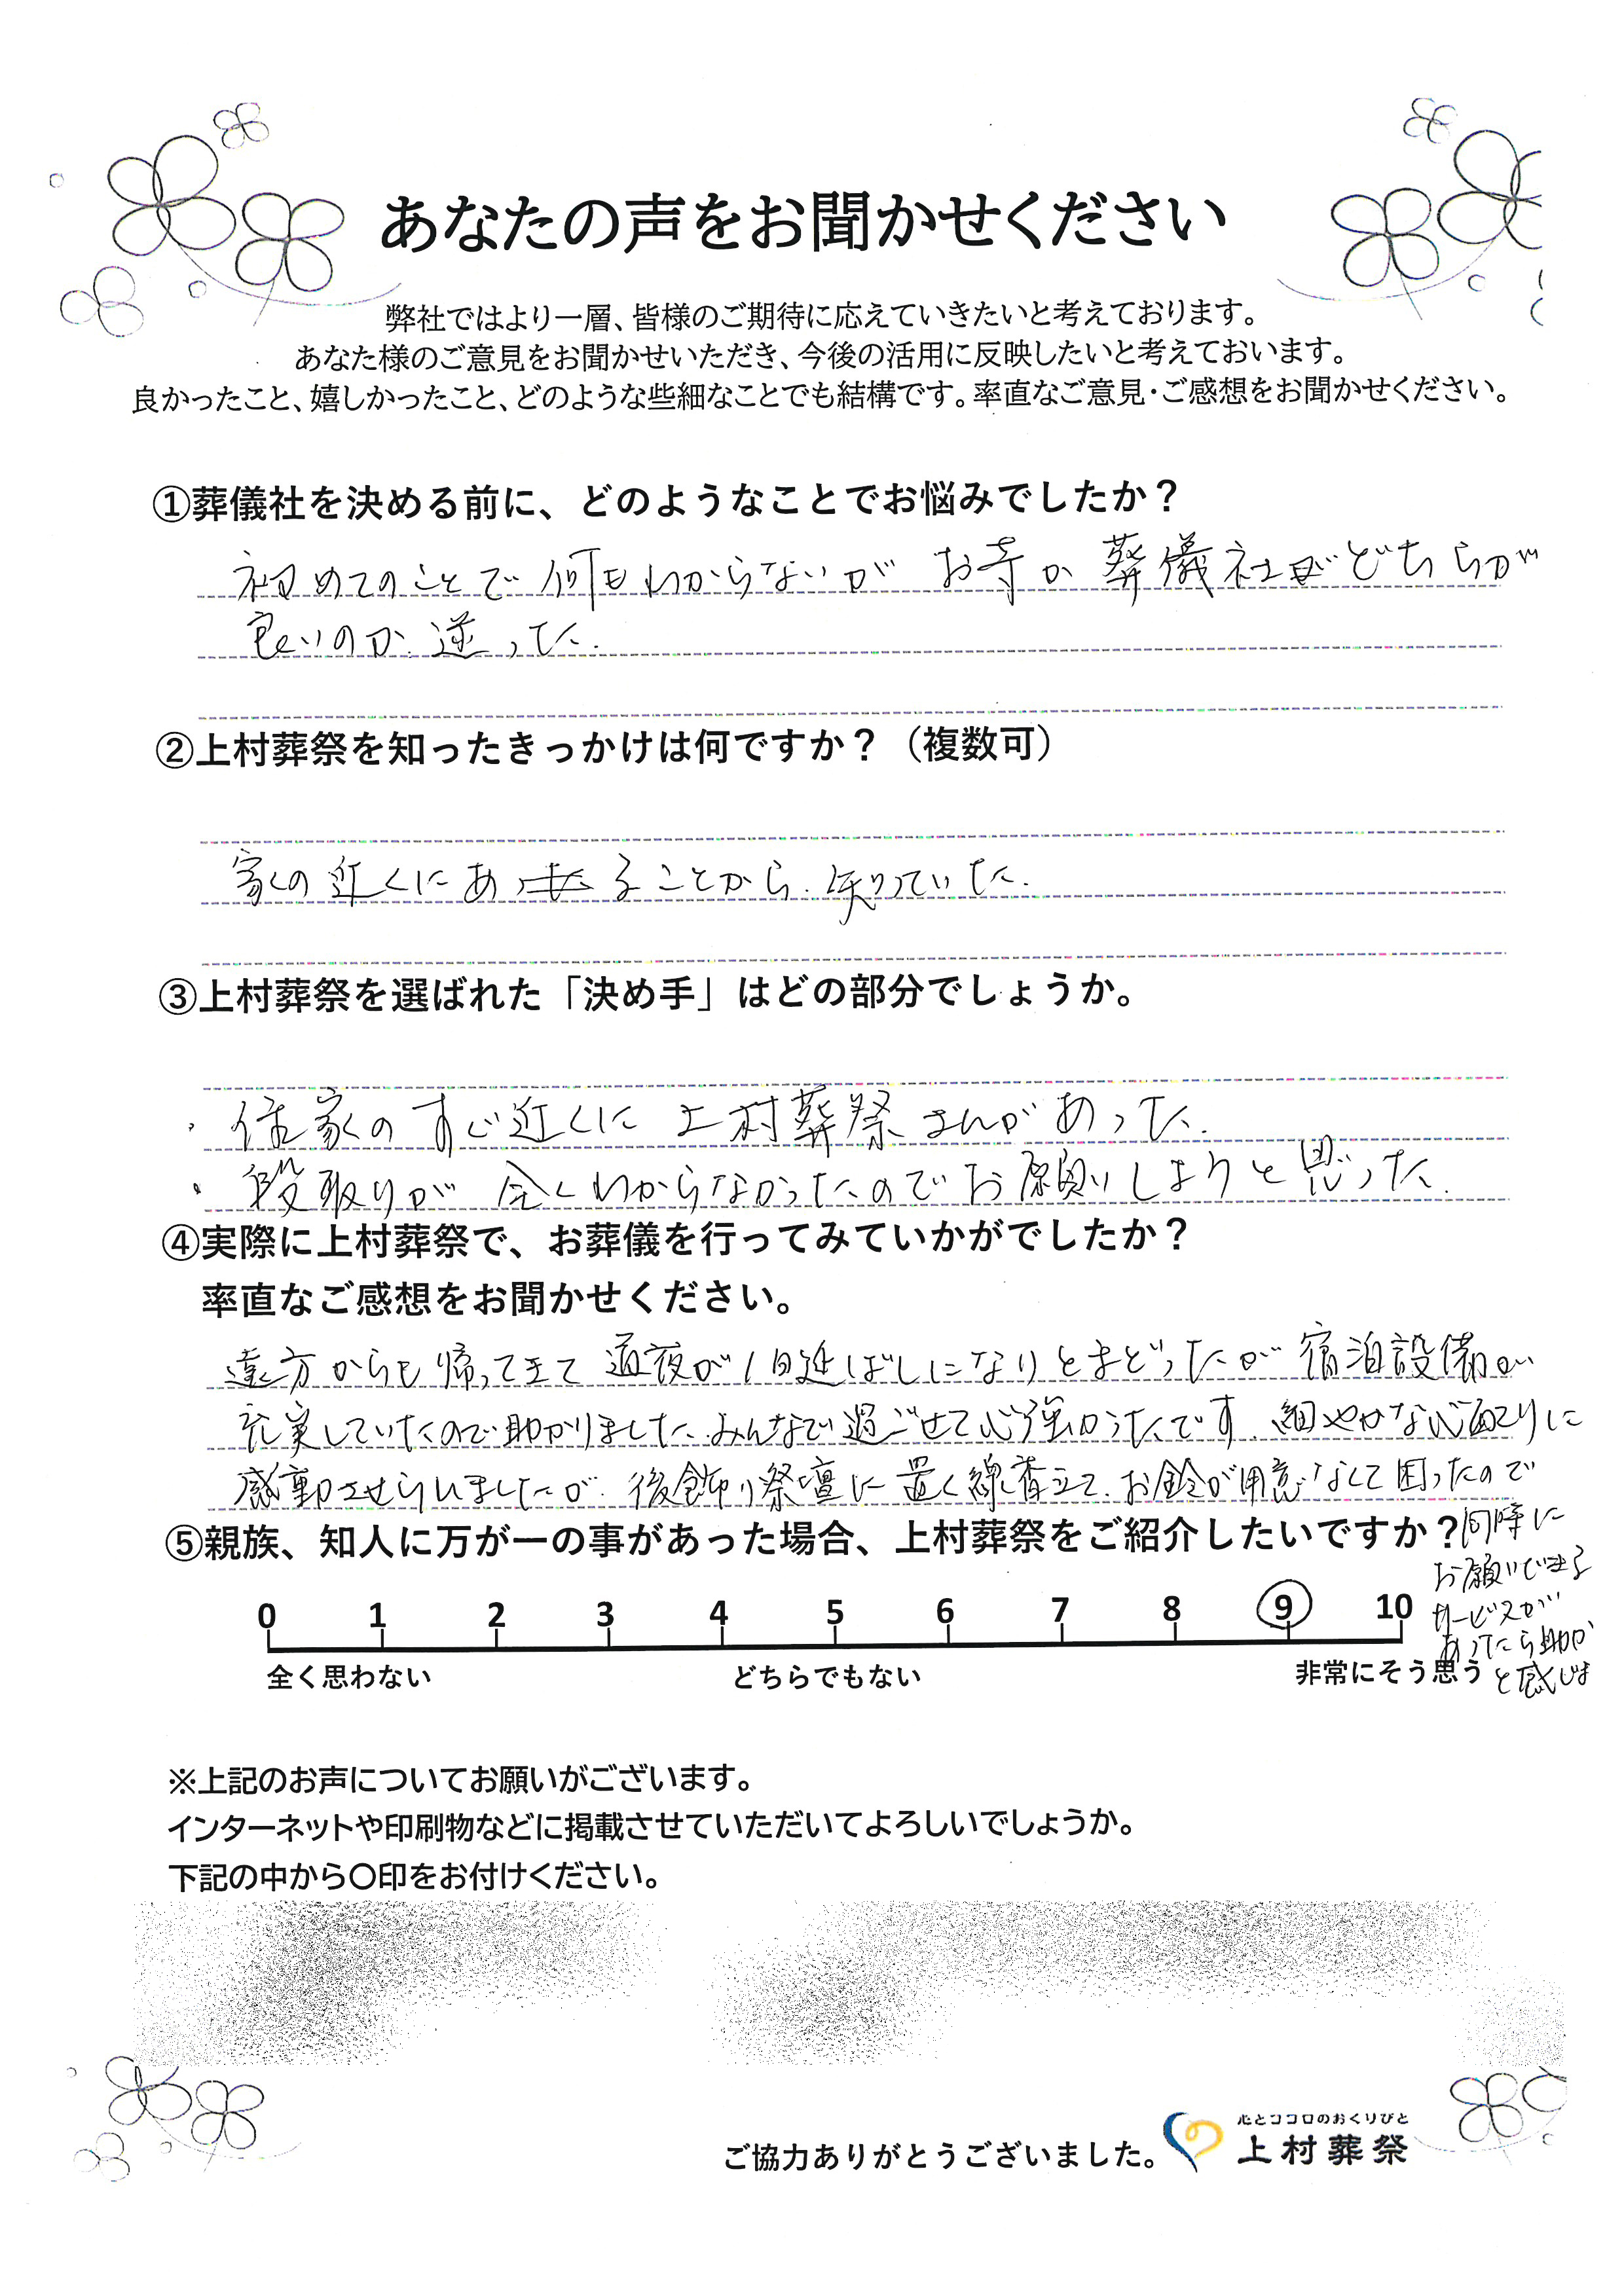 あなたの声をお聞かせください
弊社ではより一層、皆様のご期待に応えていきたいと考えております。
あなた様のご意見をお聞かせいただき、今後の活用に反映したいと考えておいます。
良かったこと、嬉しかったこと、どのような些細なことでも結構です。率直なご意見・ご感想をお聞かせください。
①葬儀社を決める前に、どのようなことでお悩みでしたか？
初めてのことで何もわからないが お寺か 葬儀社がどちらが
良いのか 迷った.
②上村葬祭を知ったきっかけは何ですか？（複数可）
家の近くにあることから 知っていた.
③上村葬祭を選ばれた「決め手」はどの部分でしょうか。
・住家のすぐ近くに 上村葬祭さんがあった.
・段取りが 全くわからなかったのでお願いしようと思った.
④実際に上村葬祭で、お葬儀を行ってみていかがでしたか？
率直なご感想をお聞かせください。
遠方からも帰ってきて 通夜が1日延ばしになりとまどったが 宿泊設備が
充実していたので助かりました.みんなで過ごせて心強かったです.細やかな心配りに
感動させられましたが 後飾り祭壇に置く線香立て.お鈴が用意なくて困ったので
⑤親族、知人に万が一の事があった場合、上村葬祭をご紹介したいですか？
同時に
お願いできる
サービスが
あったら助か
と感じま
0 1 2 3 4 5 6 7 8 9 10
全く思わない どちらでもない 非常にそう思う
※上記のお声についてお願いがございます。
インターネットや印刷物などに掲載させていただいてよろしいでしょうか。
下記の中から〇印をお付けください。
ご協力ありがとうございました。
心とココロのおくりびと
上村葬祭